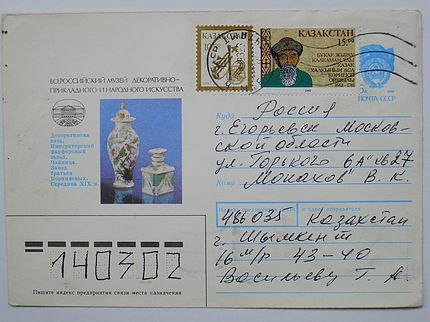 ВСЕРОССИЙСКИЙ МУЗЕЙ ДЕКОРАТИВНО-
ПРИКЛАДНОГО И НАРОДНОГО ИСКУССТВА
Декоративная
ваза.
Императорский
фарфоровый
завод.
Чайница.
Завод
братьев
Корниловых.
Середина XIX в.
КАЗАКСТАН
ҚАЗАҚСТАН
15.00
БҰҚАР ЖЫРАУ
ҚАЛҚАМАН ҰЛЫ
ҚАЗАҚ
ХАЛҚЫНЫҢ ҰЛЫ
ПОЧТА СССР
Куда Россия
г. Егорьевск Москов-
ской области
ул. Горького 6А" №27
Кому "Монахов" В. К.
и адрес отправителя
486035 Казахстан
г. Шымкент
16 м/р 43-40
Васильеву Г. А.
140302
Пишите индекс предприятия связи места назначения